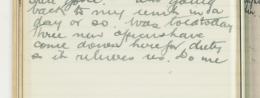 back to my unit in a
day or so. Was told today
three new officers have
come down here for duty
so it relieves us. Do me